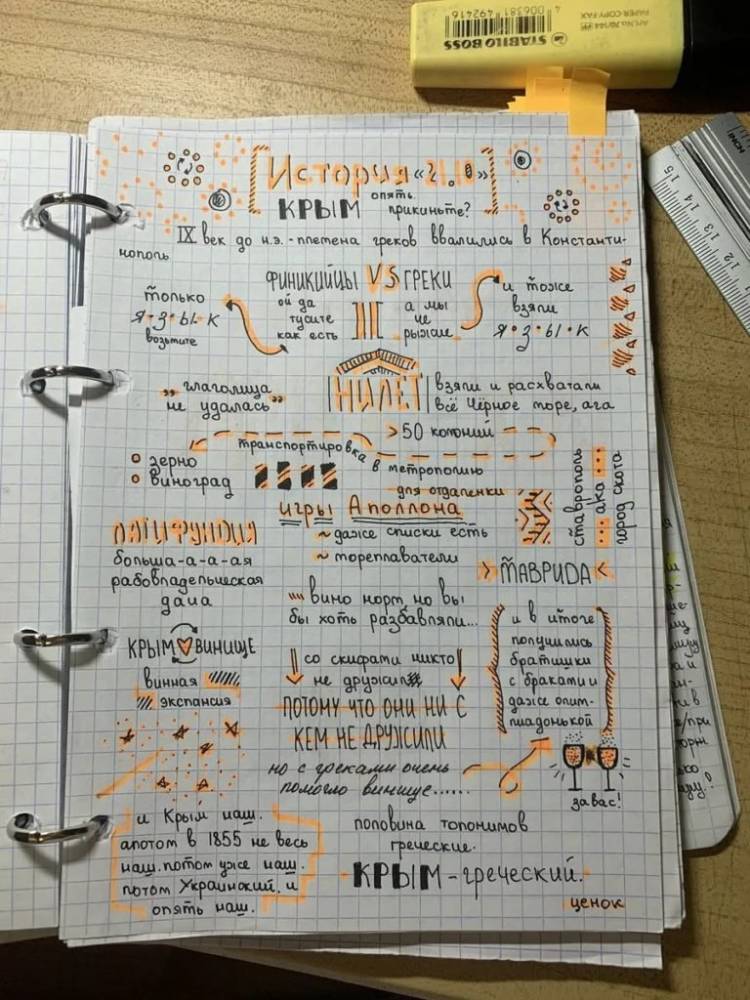 STABILO BOSS
PAPER-COPY-FAX
4 006381 492416
История «21.10»
опять.
КРЫМ прикиньте?
IX век до н.э. - племена греков ввалились в Константи-
нополь
ФИНИКИЙЦЫ VS ГРЕКИ
только
Я•З•Ы•К
возьмите
ой да
тусите
как есть
а мы
не
рыжие
и тоже
взяли
Я•З•Ы•К
„глаголица
не удалась"
МИЛЕТ
взяли и расхватали
всё Чёрное море, ага
>50 колоний
транспортировка в метрополию
зерно
виноград
для отдаленки
игры Аполлона
~ даже списки есть
~ мореплаватели
ставрополь
... ака ...
город скота
ЛАТИФУНДИЯ
больша-а-а-ая
рабовладельческая
дача
> ТАВРИДА <
вино норм но вы
бы хоть разбавляли...
КРЫМ ВИНИЩЕ
винная
экспансия
со скифами никто
не дружил
ПОТОМУ ЧТО ОНИ НИ С
КЕМ НЕ ДРУЖИЛИ
но с греками очень
помогло винище......
и в итоге
получились
братишки
с браками и
даже олим-
пиадонькой
за вас!
и Крым наш.
а потом в 1855 не весь
наш. потом уже наш.
потом Украинский. и
опять наш.
половина топонимов
греческие.
КРЫМ - греческий.
ценок
15
14
13
12
11